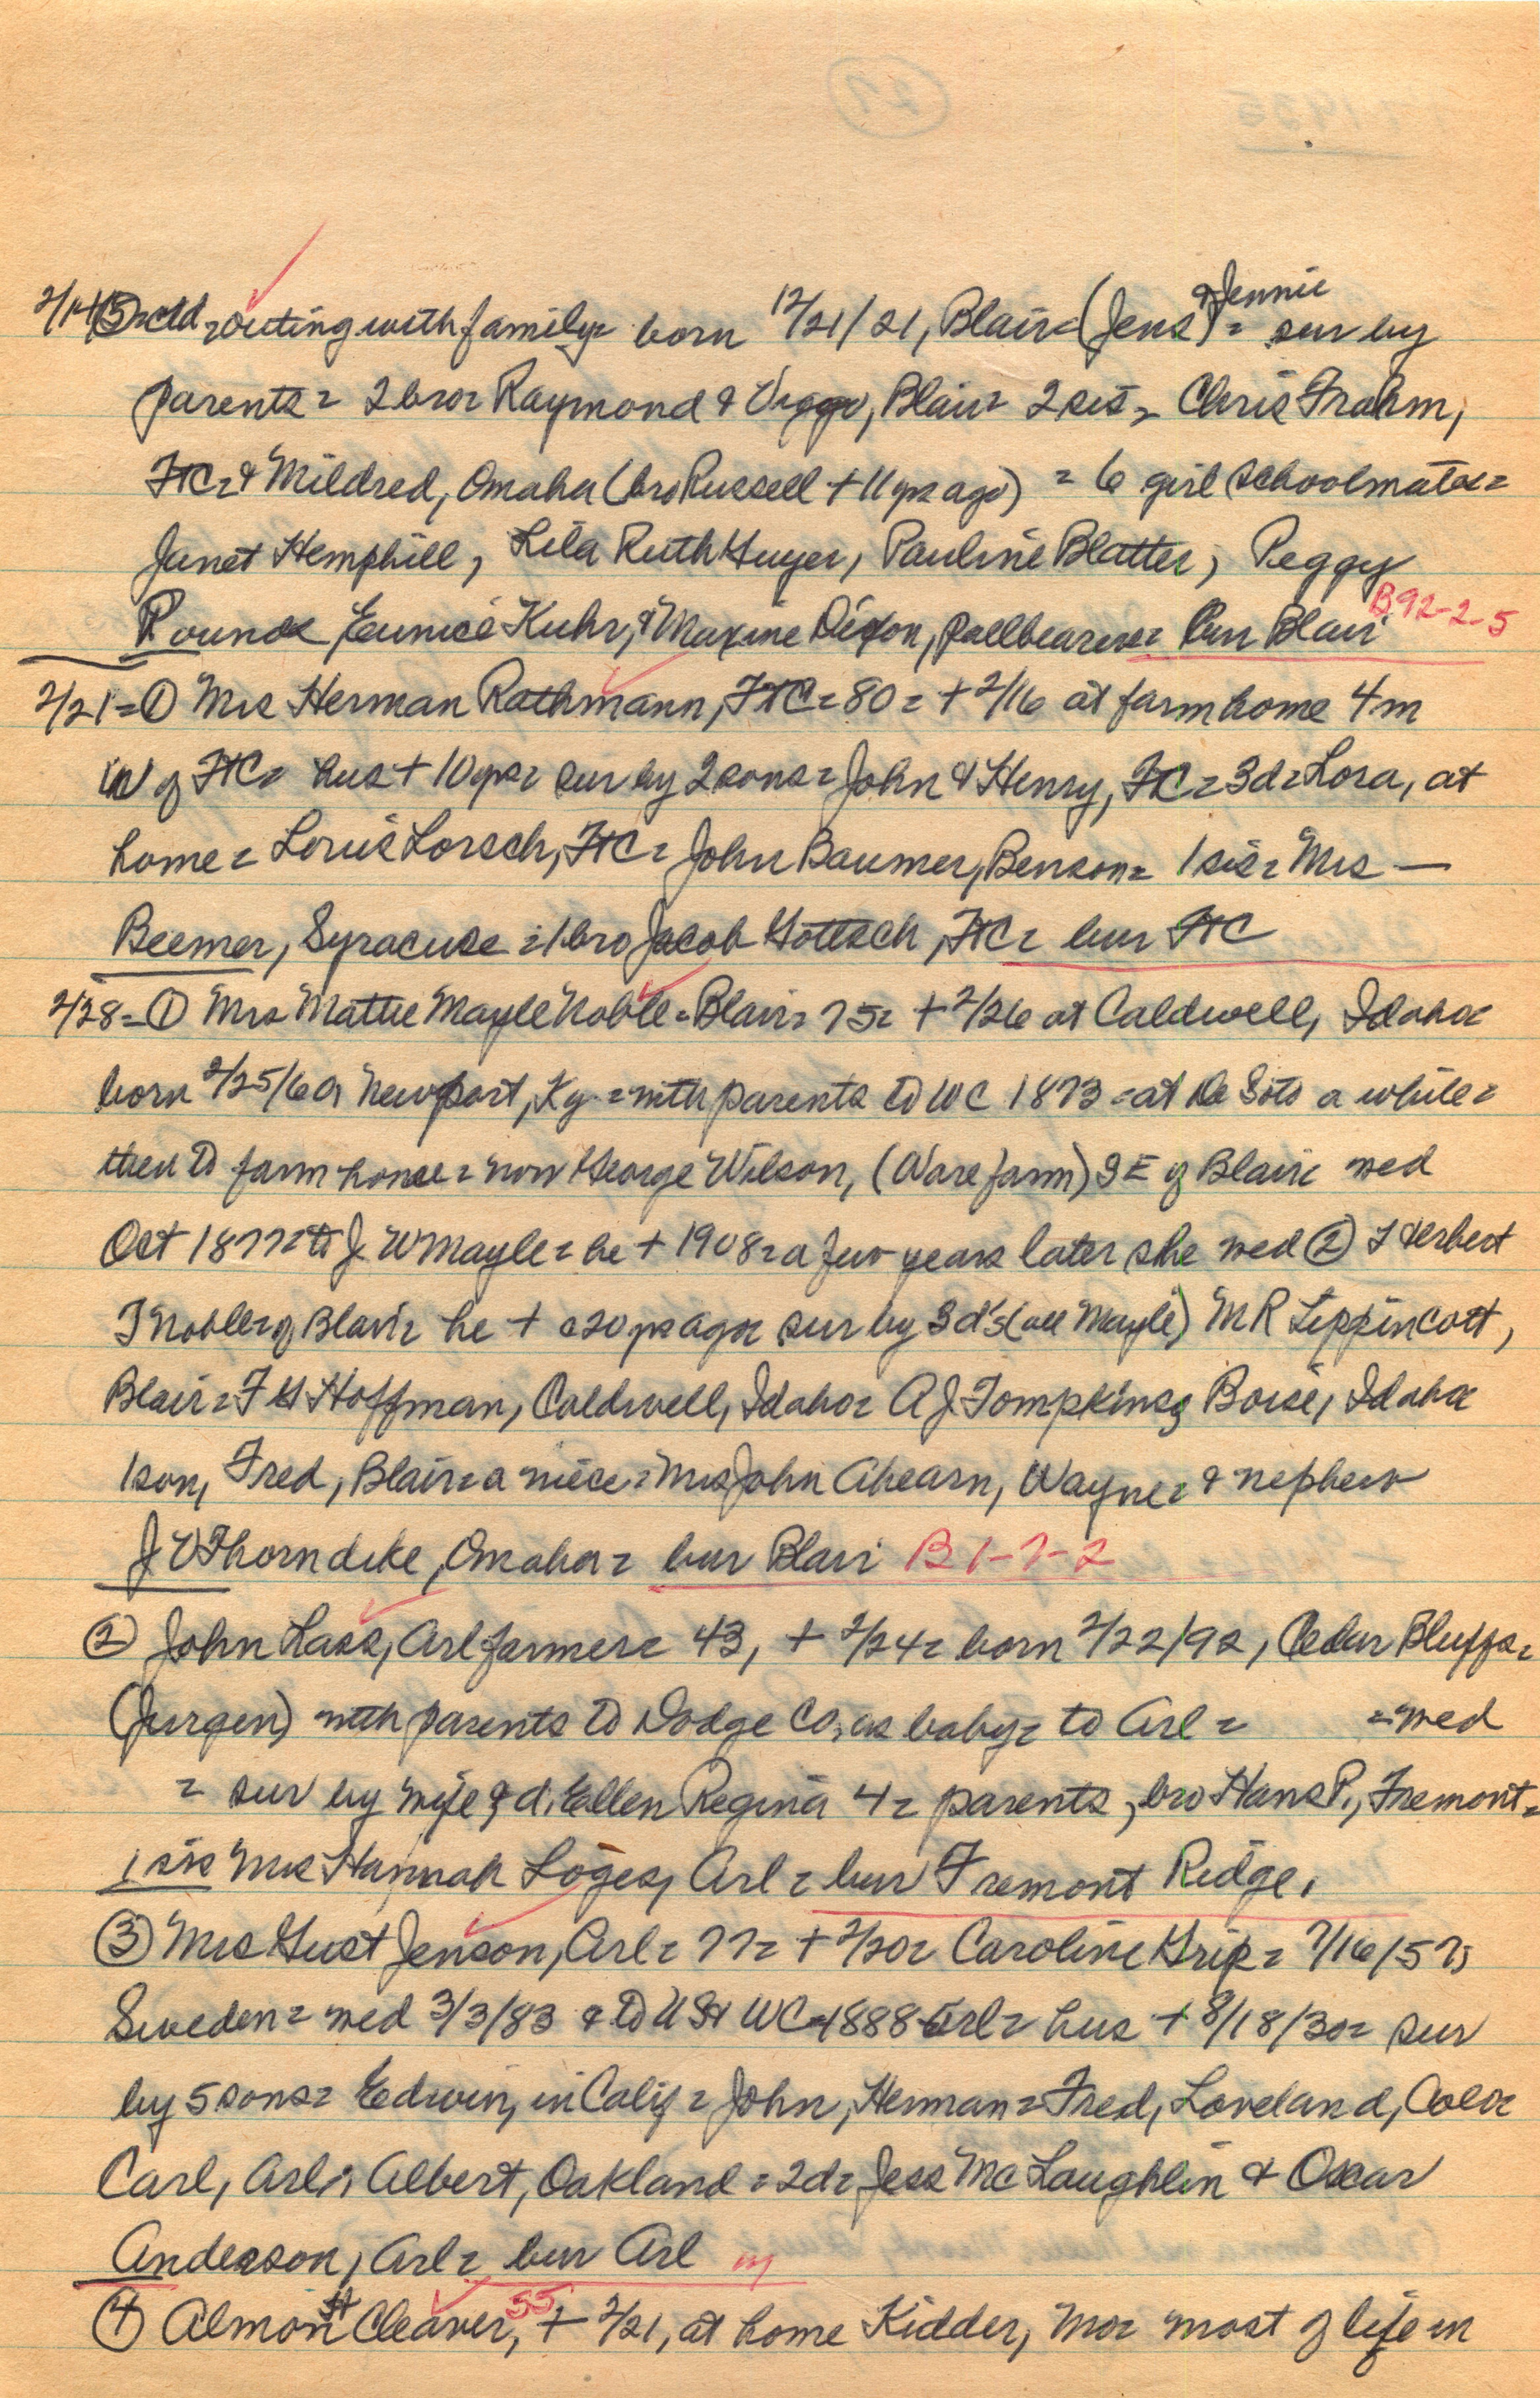 2/14(5)=ctd =outing with family= born 12/21/21, Blair=(Jens & Jennie)= sur by
parents= 2 bro= Raymond & Viggo, Blair= 2 sis= Chris Frahm,
FtC=& Mildred, Omaha (bro Russell + 11 yrs ago) = 6 girl schoolmates=
Janet Hemphill, Lila Ruth Guyer, Pauline Blatter, Peggy
Rounds Eunice Kuhr, & Maxine Dixon, pallbearers= bur Blair B92-2-5
2/21=① Mrs Herman Rathmann, FtC=80= + 2/16 at farm home 4 m
W of FtC= hus + 10 yrs= sur by 2 sons= John & Henry, FtC= 3d= Lora, at
home= Louis Lorsch, FtC= John Baumer, Benson= 1 sis= Mrs —
Beemer, Syracuse =1 bro Jacob Gottsch, FtC= bur FtC
2/28=① Mrs Mattie Mayle Noble=Blair= 75= + 2/26 at Caldwell, Idaho=
born 2/25/60 Newport, Ky.= with parents to WC 1873 =at De Soto a while=
then to farm home= now George Wilson, (Ware farm) SE of Blair= wed
Oct 1877= to J W Mayle= he + 1908= a few years later she wed ② Herbert
T Noble= of Blair= he + c20 yrs ago= sur by 3 d's (all Mayle) M R Lippincott,
Blair= F H Hoffman, Caldwell, Idaho= A J Tompkins, Boise, Idaho=
1 son, Fred, Blair= a niece= Mrs John Ahearn, Wayne= & nephew
J V Thorndike, Omaha= bur Blair B 1-7-2
② John Lass, Arl farmer= 43, + 2/24= born 2/22/92, Cedar Bluffs=
(Jurgen) with parents to Dodge Co. as baby= to Arl= =wed
= sur by wife & d. Ellen Regina 4= parents, bro Hans P., Fremont=
1 sis Mrs Hannah Loges, Arl= bur Fremont Ridge.
③ Mrs Gust Jenson, Arl= 77= + 2/20= Caroline Grip= 7/16/57,
Sweden= wed 3/3/83 & to US & WC=1888 Arl= hus + 8/18/30= sur
by 5 sons= Edwin, in Calif= John, Herman=Fred, Loveland, Colo=
Carl, Arl; Albert, Oakland=2d= Jess McLaughlin & Oscar
Anderson, Arl= bur Arl
④ Almon H Cleaver, 55 + 2/21, at home Kidder, Mo= most of life in